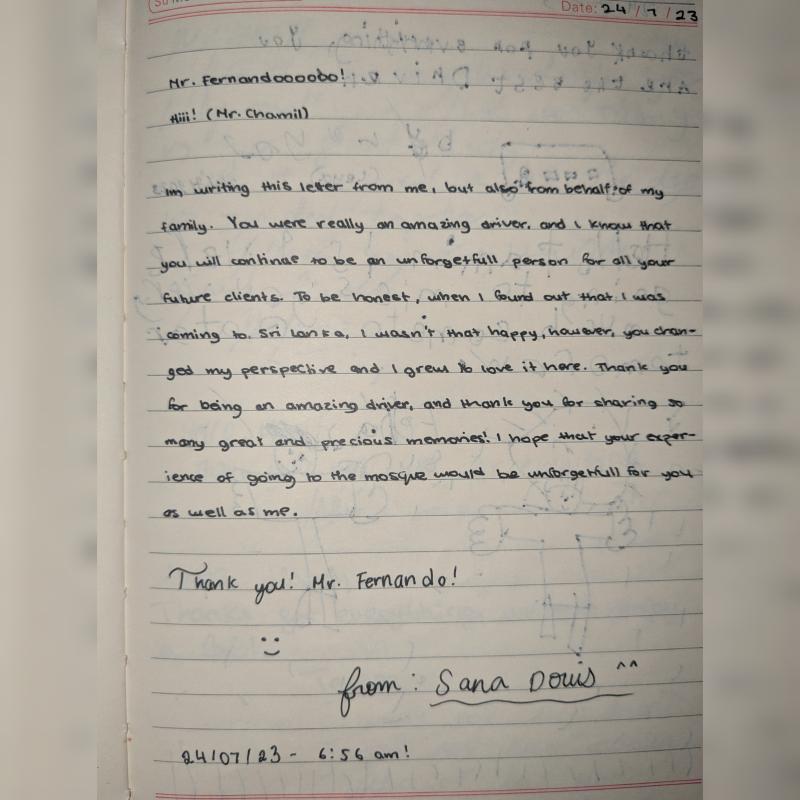 Date: 24/7/23
Mr. Fernandooooo!
Hiii! (Mr. Chamil)
im writing this letter from me, but also from behalf of my
family. You were really an amazing driver, and I know that
you will continue to be an unforgetfull person for all your
future clients. To be honest, when I found out that I was
coming to Sri Lanka, I wasn't that happy, however, you chan-
ged my perspective and I grew to love it here. Thank you
for being an amazing driver, and thank you for sharing so
many great and precious memories! I hope that your exper-
ience of going to the mosque would be unforgetfull for you
as well as me.
Thank you! Mr. Fernando!
from: Sana ^^
24/07/23 - 6:56 am!